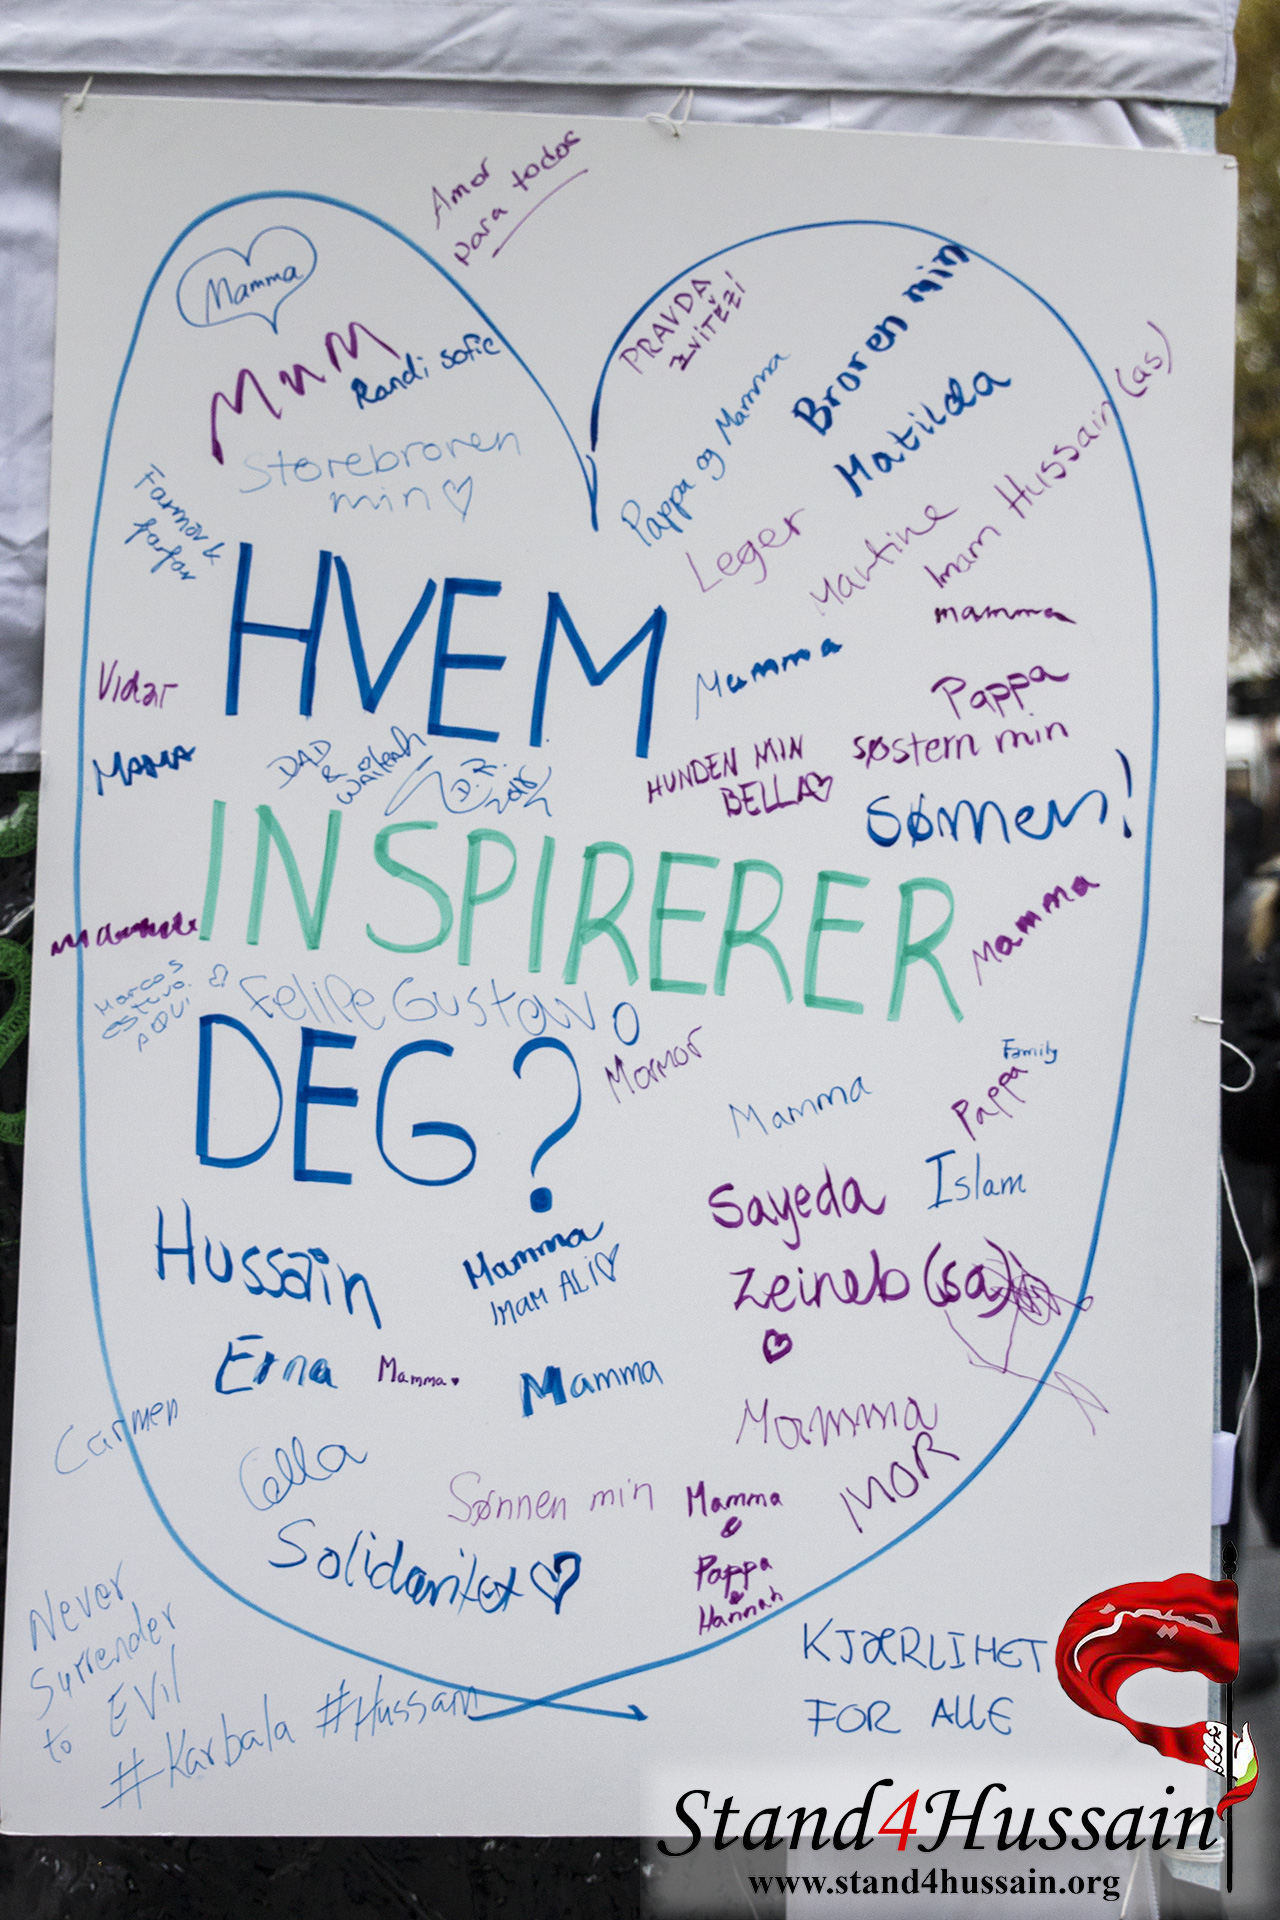 Amor
para todos
Mamma
Mum
Randi Sofie
Storebroren
min
Farmor &
farfar
PRAVDA
ZVÍTĚZÍ
Pappa og Mamma
Broren min
Matilda
Leger
Martine
Imam Hussain (as)
mamma
Mamma
Pappa
søstern min
HUNDEN MIN
BELLA
HVEM
Vidar
MAMA
DAD
&
INSPIRERER
Mamma
Marcos
esteve
AQUI
Felipe Gustavo
DEG?
Mormor
Mamma
Family
Pappa
Islam
Sayeda
Zeineb (sa)
Hussain
Mamma
IMAM ALI
Erna
Mamma
Mamma
Carmen
Mamma
MOR
Sønnen min
Mamma
&
Pappa
&
Hannah
Solidaritet
Never
Surrender
to Evil
#Karbala #Hussain
KJÆRLIHET
FOR ALLE
حسین
Stand4Hussain
www.stand4hussain.org